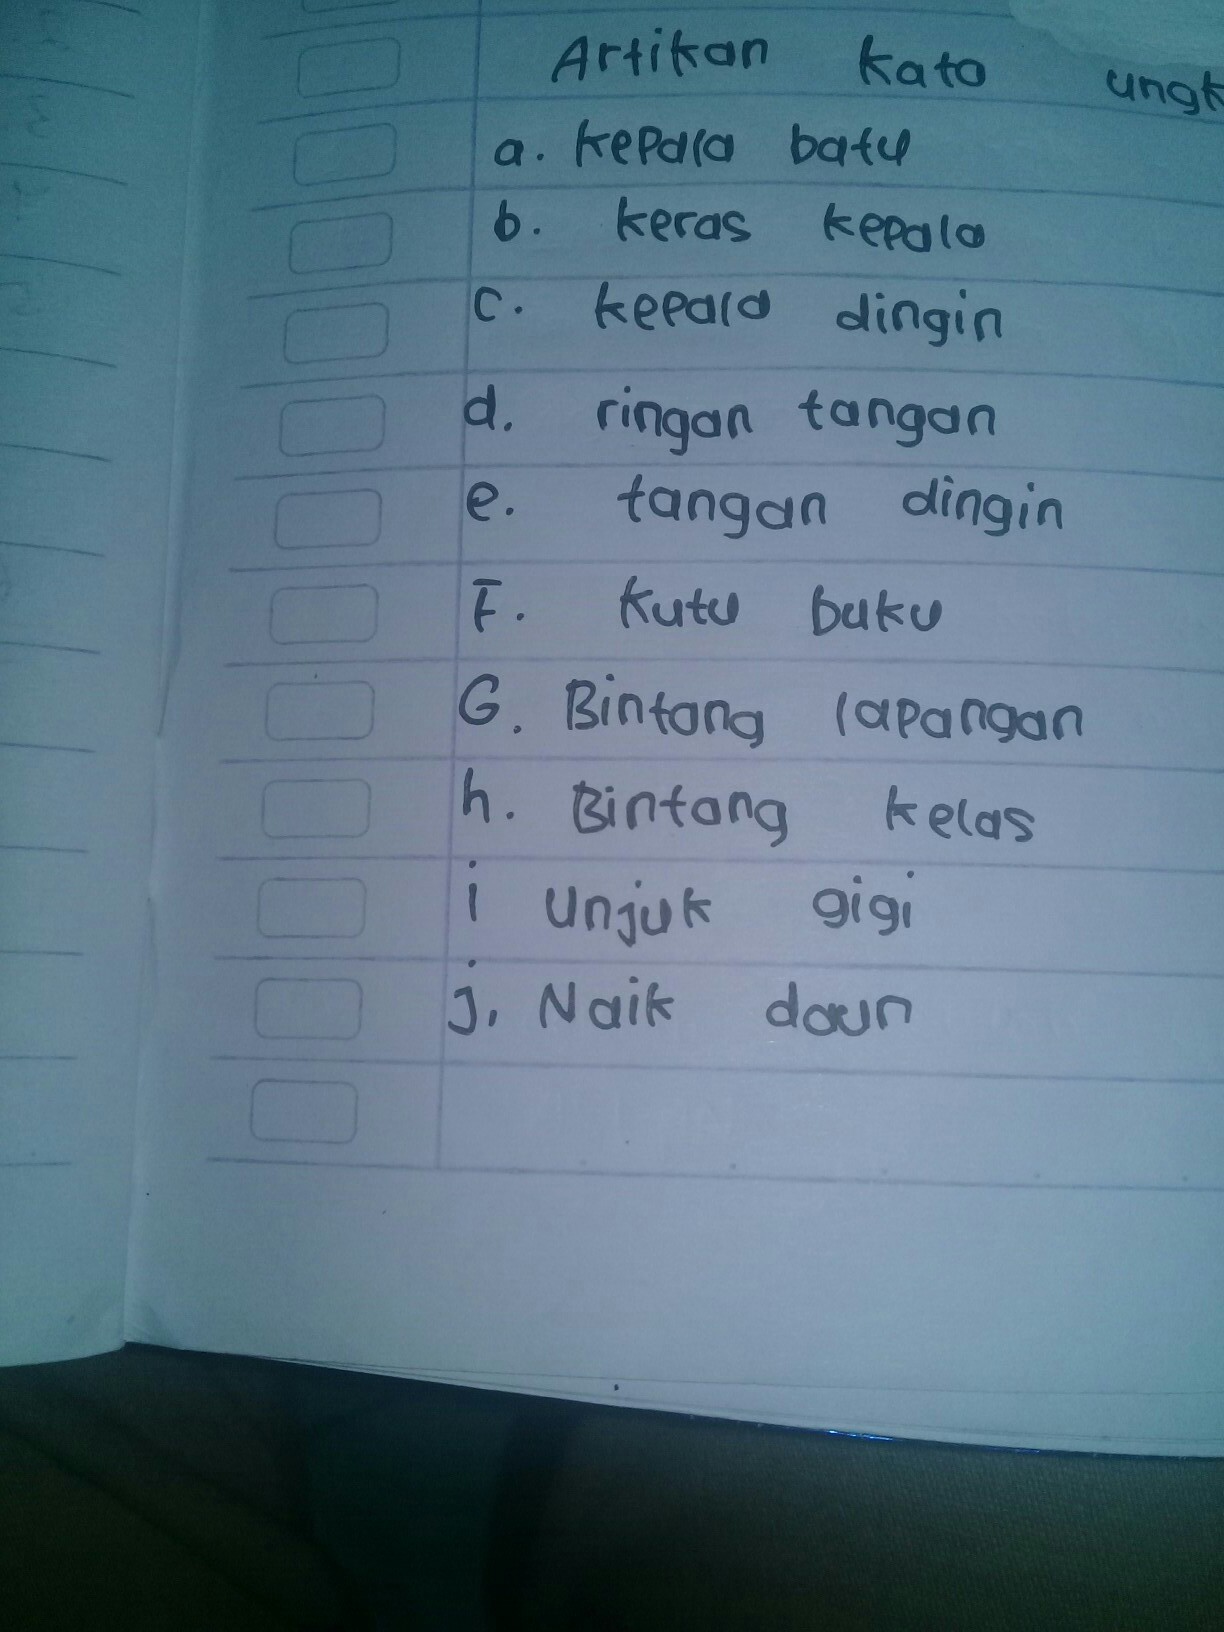 Artikan kata ungk
a. kepala batu
b. keras kepala
c. kepala dingin
d. ringan tangan
e. tangan dingin
F. kutu buku
G. Bintang lapangan
h. Bintang kelas
i unjuk gigi
j. Naik daun